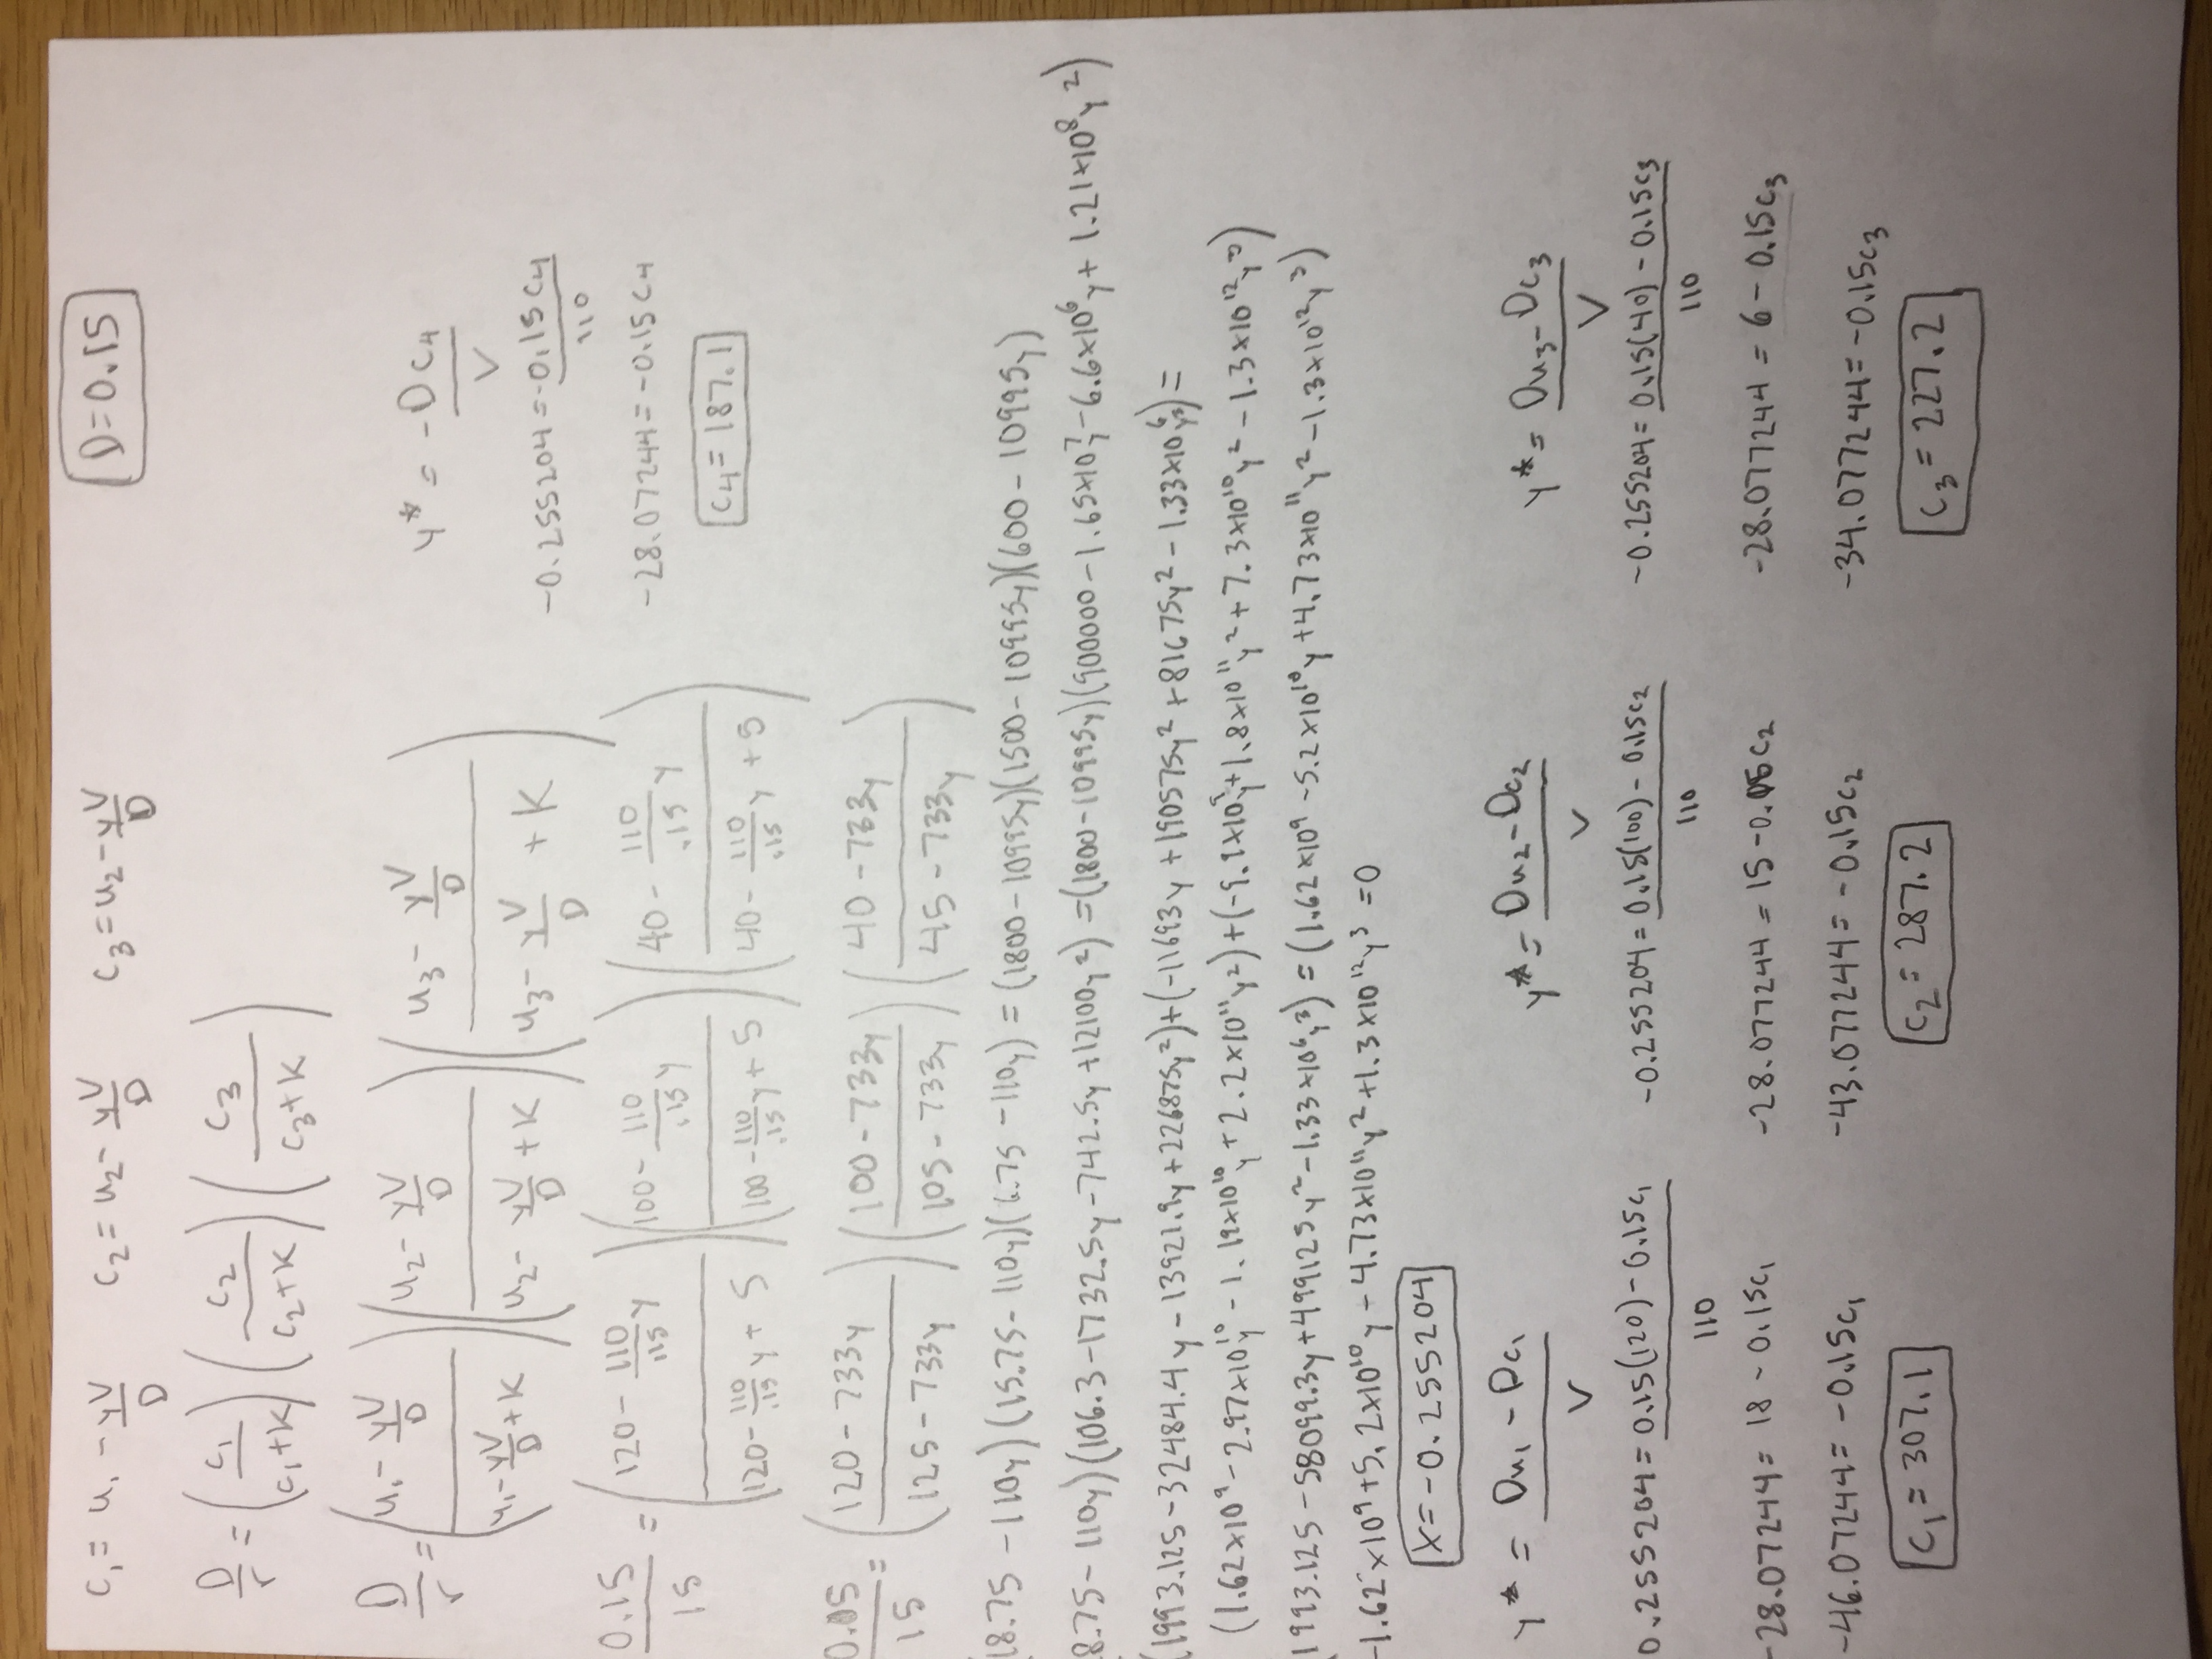 D=0.15
c₁ = u₁ - yV/D    c₂ = u₂ - yV/D    c₃ = u₂ - yV/D
D/r = (c₁/(c₁+K)) (c₂/(c₂+K)) (c₃/(c₃+K))
D/r = ((u₁ - yV/D)/(u₁ - yV/D + K)) ((u₂ - yV/D)/(u₂ - yV/D + K)) ((u₃ - yV/D)/(u₃ - yV/D + K))
y* = -Dc₄/V
-0.255204 = -0.15c₄/110
-28.07244 = -0.15c₄
c₄ = 187.1
0.15/15 = ((120 - 110/.15 y)/(120 - 110/.15 y + 5)) ((100 - 110/.15 y)/(100 - 110/.15 y + 5)) ((40 - 110/.15 y)/(40 - 110/.15 y + 5))
0.15/15 = ((120 - 733y)/(125 - 733y)) ((100 - 733y)/(105 - 733y)) ((40 - 733y)/(45 - 733y))
(18.75 - 110y)(15.75 - 110y)(6.75 - 110y) = (1800 - 10995y)(1500 - 10995y)(600 - 10995y)
8.75 - 110y)(106.3 - 1732.5y - 742.5y + 12100y²) = (1800 - 10995y)(900000 - 1.65×10⁷y - 6.6×10⁶y + 1.21×10⁸y²)
(1993.125 - 32484.4y - 13921.9y + 226875y²) + (-11693y + 190575y² + 81675y² - 1.33×10⁶y³) =
(1.62×10⁹ - 2.97×10¹⁰y - 1.19×10¹⁰y + 2.2×10¹¹y²) + (-9.9×10⁹y + 1.8×10¹¹y² + 7.3×10¹⁰y² - 1.3×10¹²y³)
(1993.125 - 58099.3y + 499125y² - 1.33×10⁶y³) = (1.62×10⁹ - 5.2×10¹⁰y + 4.73×10¹¹y² - 1.3×10¹²y³)
-1.62×10⁹ + 5.2×10¹⁰y - 4.73×10¹¹y² + 1.3×10¹²y³ = 0
x = -0.255204
y* = (Du₁ - Dc₁)/V    y* = (Du₂ - Dc₂)/V    y* = (Du₃ - Dc₃)/V
0.255204 = (0.15(120) - 0.15c₁)/110    -0.255204 = (0.15(100) - 0.15c₂)/110    -0.255204 = (0.15(40) - 0.15c₃)/110
-28.07244 = 18 - 0.15c₁    -28.077244 = 15 - 0.15c₂    -28.077244 = 6 - 0.15c₃
-46.07244 = -0.15c₁    -43.077244 = -0.15c₂    -34.077244 = -0.15c₃
c₁ = 307.1    c₂ = 287.2    c₃ = 227.2